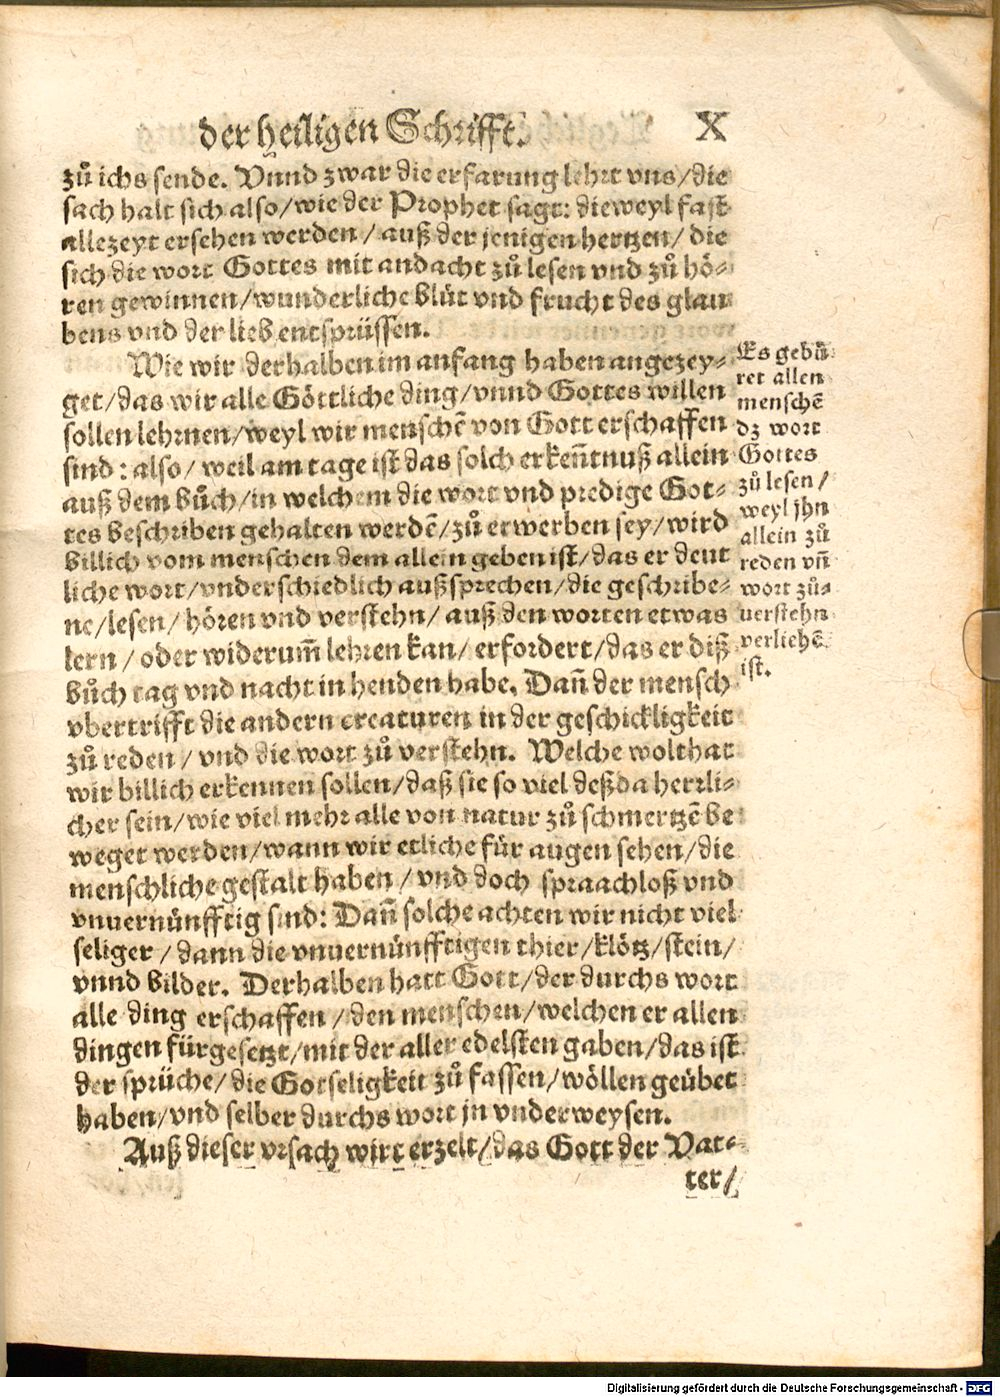 der heiligen Schrifft. X
zuͦ ichs sende. Vnnd zwar die erfarung lehrt vns/die
sach halt sich also/wie der Prophet sagt: dieweyl fast
allezeyt ersehen werden/ auß der jenigen hertzen/ die
sich die wort Gottes mit andacht zuͦ lesen vnd zuͦ hoͤ-
ren gewinnen/wunderliche bluͤt vnd frucht des glau
bens vnd der lieb entsprüssen.
Wie wir derhalben im anfang haben angezey-
get/das wir alle Goͤttliche ding/vnnd Gottes willen
sollen lehrnen/weyl wir menschẽ von Gott erschaffen
sind: also/ weil am tage ist das solch erkeñtnuß allein
auß dem buͦch/in welchem die wort vnd predige Got-
tes beschriben gehalten werdẽ/zuͦ erwerben sey/wird
billich vom menschen dem allein geben ist/das er deut
liche wort/vnderschiedlich außsprechen/die geschribe-
ne/lesen/ hoͤren vnd verstehn/ auß den worten etwas
lern/ oder widerum̃ lehren kan/ erfordert/das er diß
buͦch tag vnd nacht in henden habe. Dañ der mensch
vbertrifft die andern creaturen in der geschickligkeit
zuͦ reden/ vnd die wort zuͦ verstehn. Welche wolthat
wir billich erkennen sollen/daß sie so viel deßda herrli-
cher sein/wie viel mehr alle von natur zuͦ schmertzẽ be
weget werden/wann wir etliche fuͤr augen sehen/die
menschliche gestalt haben/ vnd doch spraachloß vnd
vnuernuͤnfftig sind: Dañ solche achten wir nicht viel
seliger/ dann die vnuernuͤnfftigen thier/kloͤtz/stein/
vnnd bilder. Derhalben hatt Gott/der durchs wort
alle ding erschaffen/den menschen/welchen er allen
dingen fuͤrgesetzt/mit der aller edelsten gaben/das ist
der sprüche/die Gotseligkeit zuͦ fassen/woͤllen geuͤbet
haben/vnd selber durchs wort jn vnderweysen.
Auß dieser vrsach wirt erzelt/das Gott der Vat-
ter/
Es gebuͤ
ret allen
menschẽ
dz wort
Gottes
zuͦ lesen/
weyl jhn
allein zuͦ
reden vñ
wort zuͦ-
uerstehn
verliehẽ
ist.
Digitalisierung gefördert durch die Deutsche Forschungsgemeinschaft - DFG